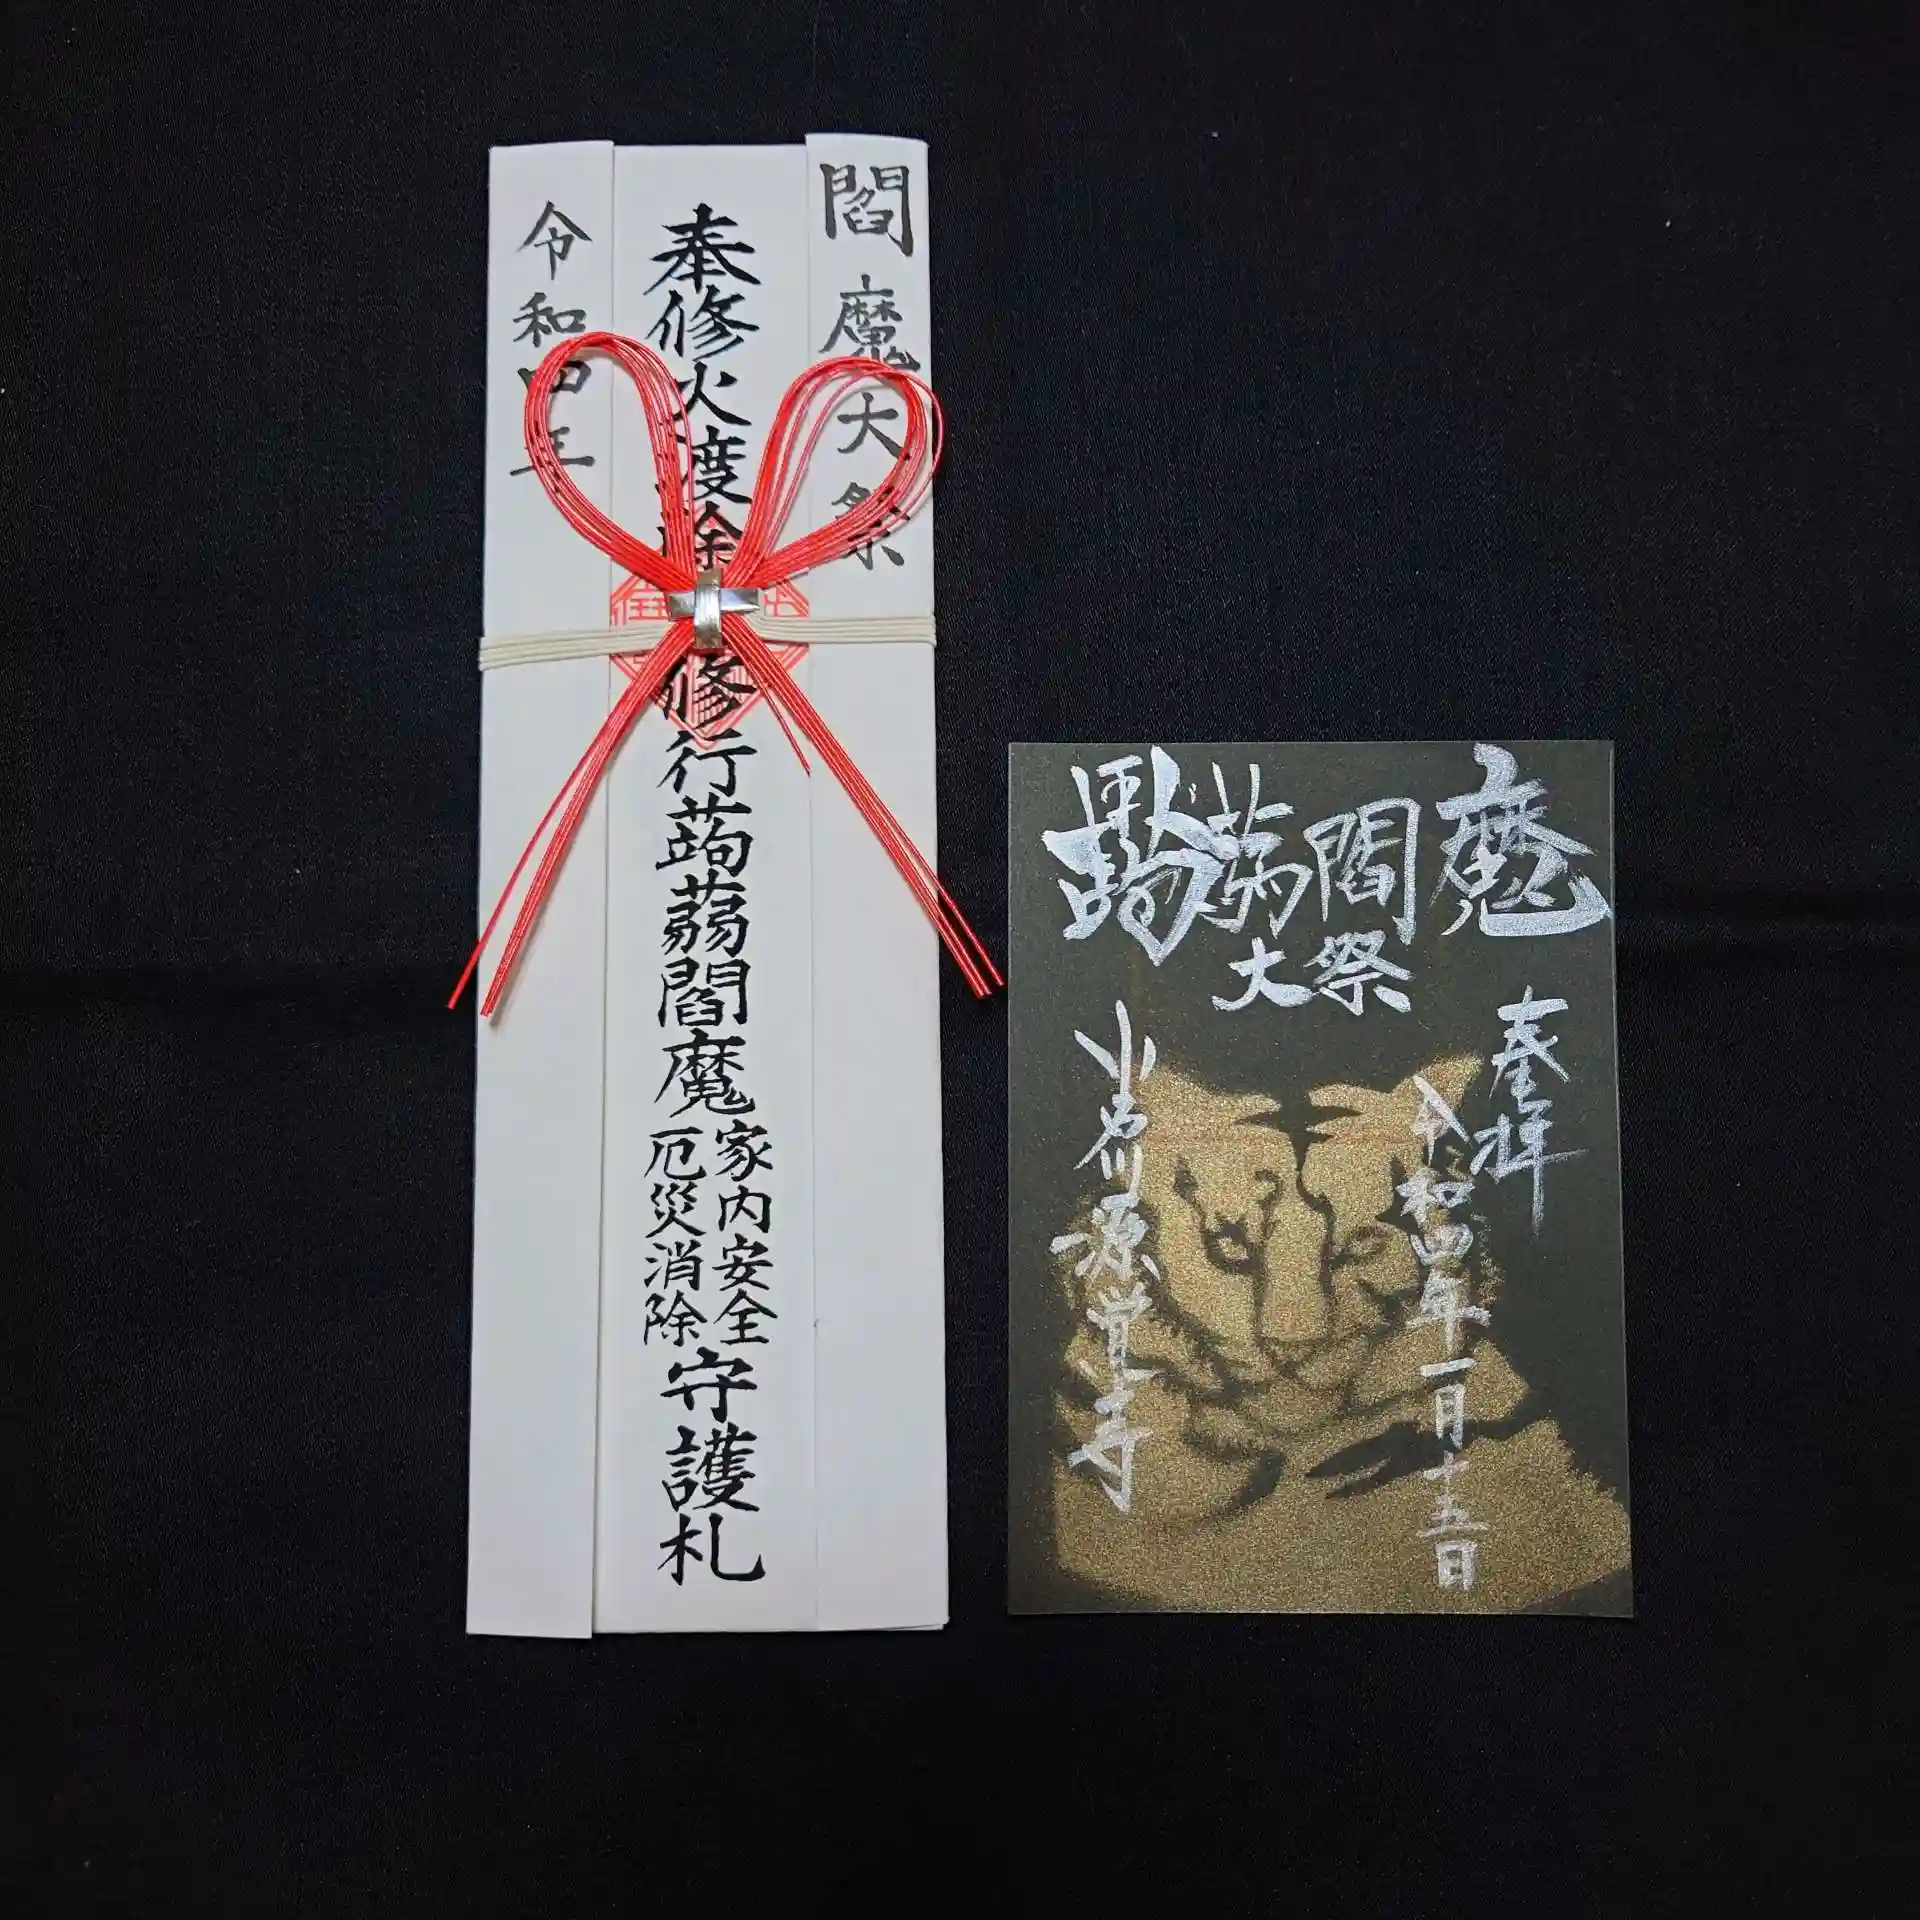 閻魔大祭
奉修火渡除
修行蒟蒻閻魔
家内安全
厄災消除
守護札
令和四年
蒟蒻閻魔
大祭
奉拝
令和四年一月十五日
小石川源覚寺